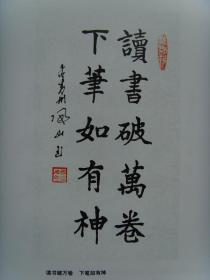 讀書破萬卷
下筆如有神
读书破万卷　下笔如有神